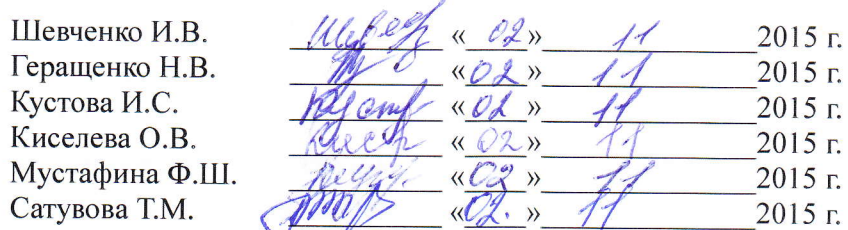 Шевченко И.В. «02» 11 2015 г.
Геращенко Н.В. «02» 11 2015 г.
Кустова И.С. «02» 11 2015 г.
Киселева О.В. «02» 11 2015 г.
Мустафина Ф.Ш. «02» 11 2015 г.
Сатувова Т.М. «02.» 11 2015 г.